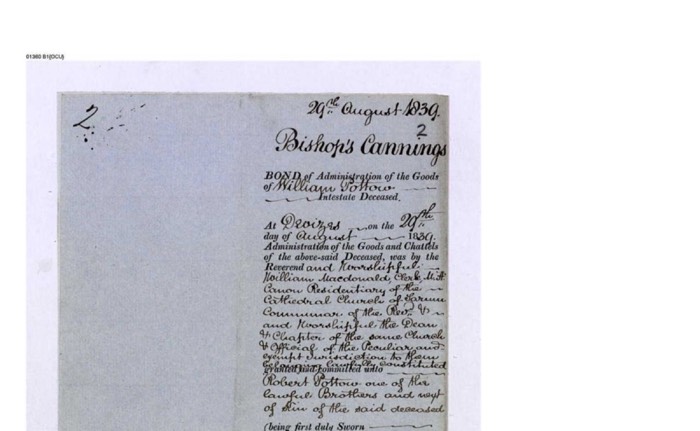 01360 B1(OCU)
2.
29th August 1839.
2
Bishop's Cannings
BOND of Administration of the Goods
of William Pottow
Intestate Deceased.
At Devizes on the 29th
day of August 1839.
Administration of the Goods and Chattels
of the above-said Deceased, was by the
Reverend and Worshipful
William Macdonald, Clerk, M.A.
Canon Residentiary of the
Cathedral Church of Sarum
of the Revd. &
and Worshipful the Dean
& Chapter of the same Church
& Official of the Peculiar and
exempt Jurisdiction to them
lawfully constituted
granted and committed unto
Robert Pottow one of the
lawful Brothers and next
of Kin of the said deceased
(being first duly Sworn